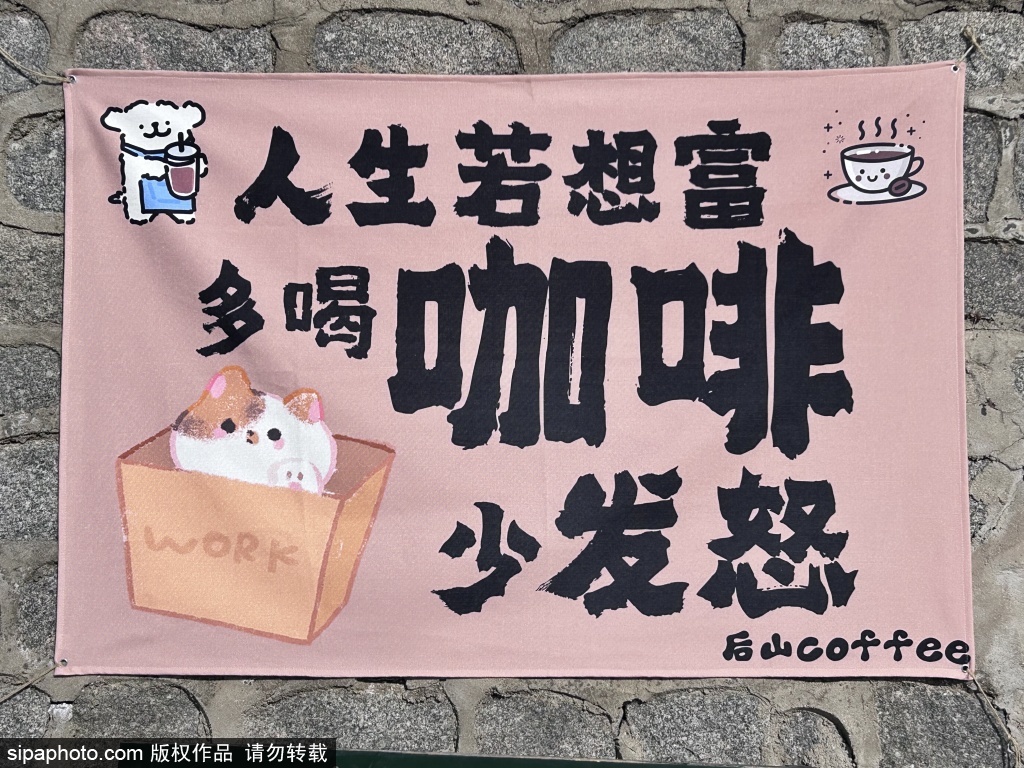 人生若想富
多喝咖啡
WORK
少发怒
后山coffee
sipaphoto.com 版权作品 请勿转载